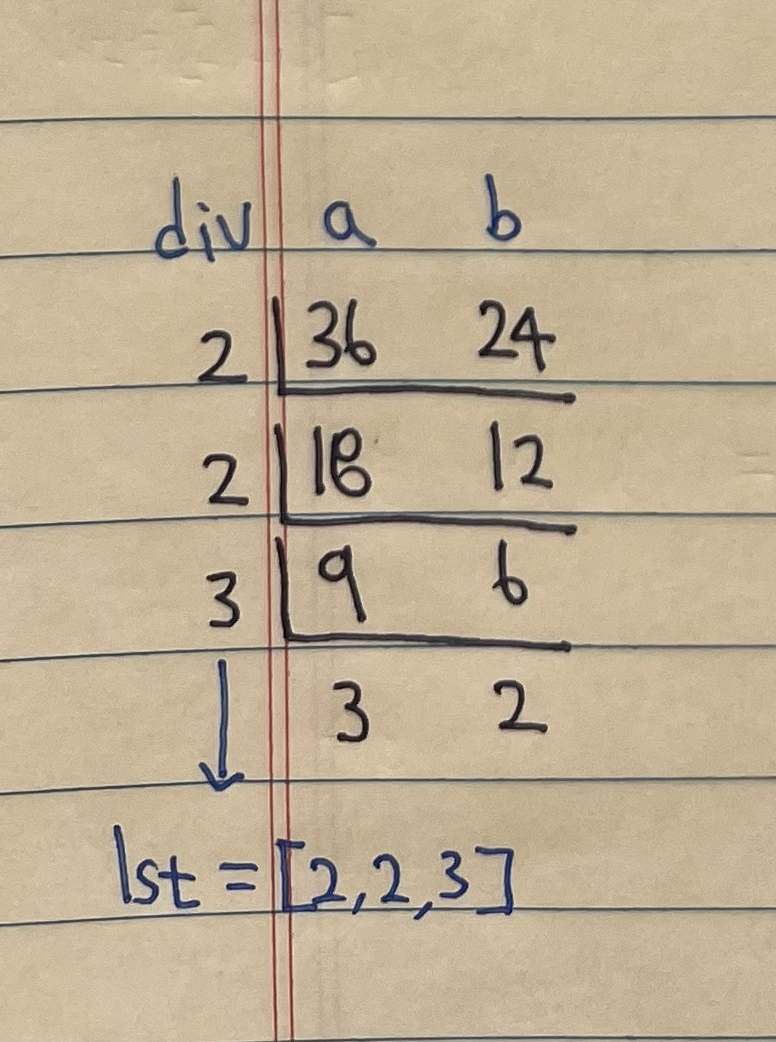 div a b
2 36 24
2 18 12
3 9 6
3 2
lst = [2,2,3]